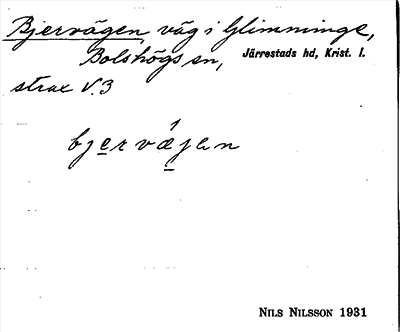 Bjervägen, väg i Glimminge,
Bolshögs sn, Järrestads hd, Krist. l.
strax V. 3
bjervǽjen
NILS NILSSON 1931